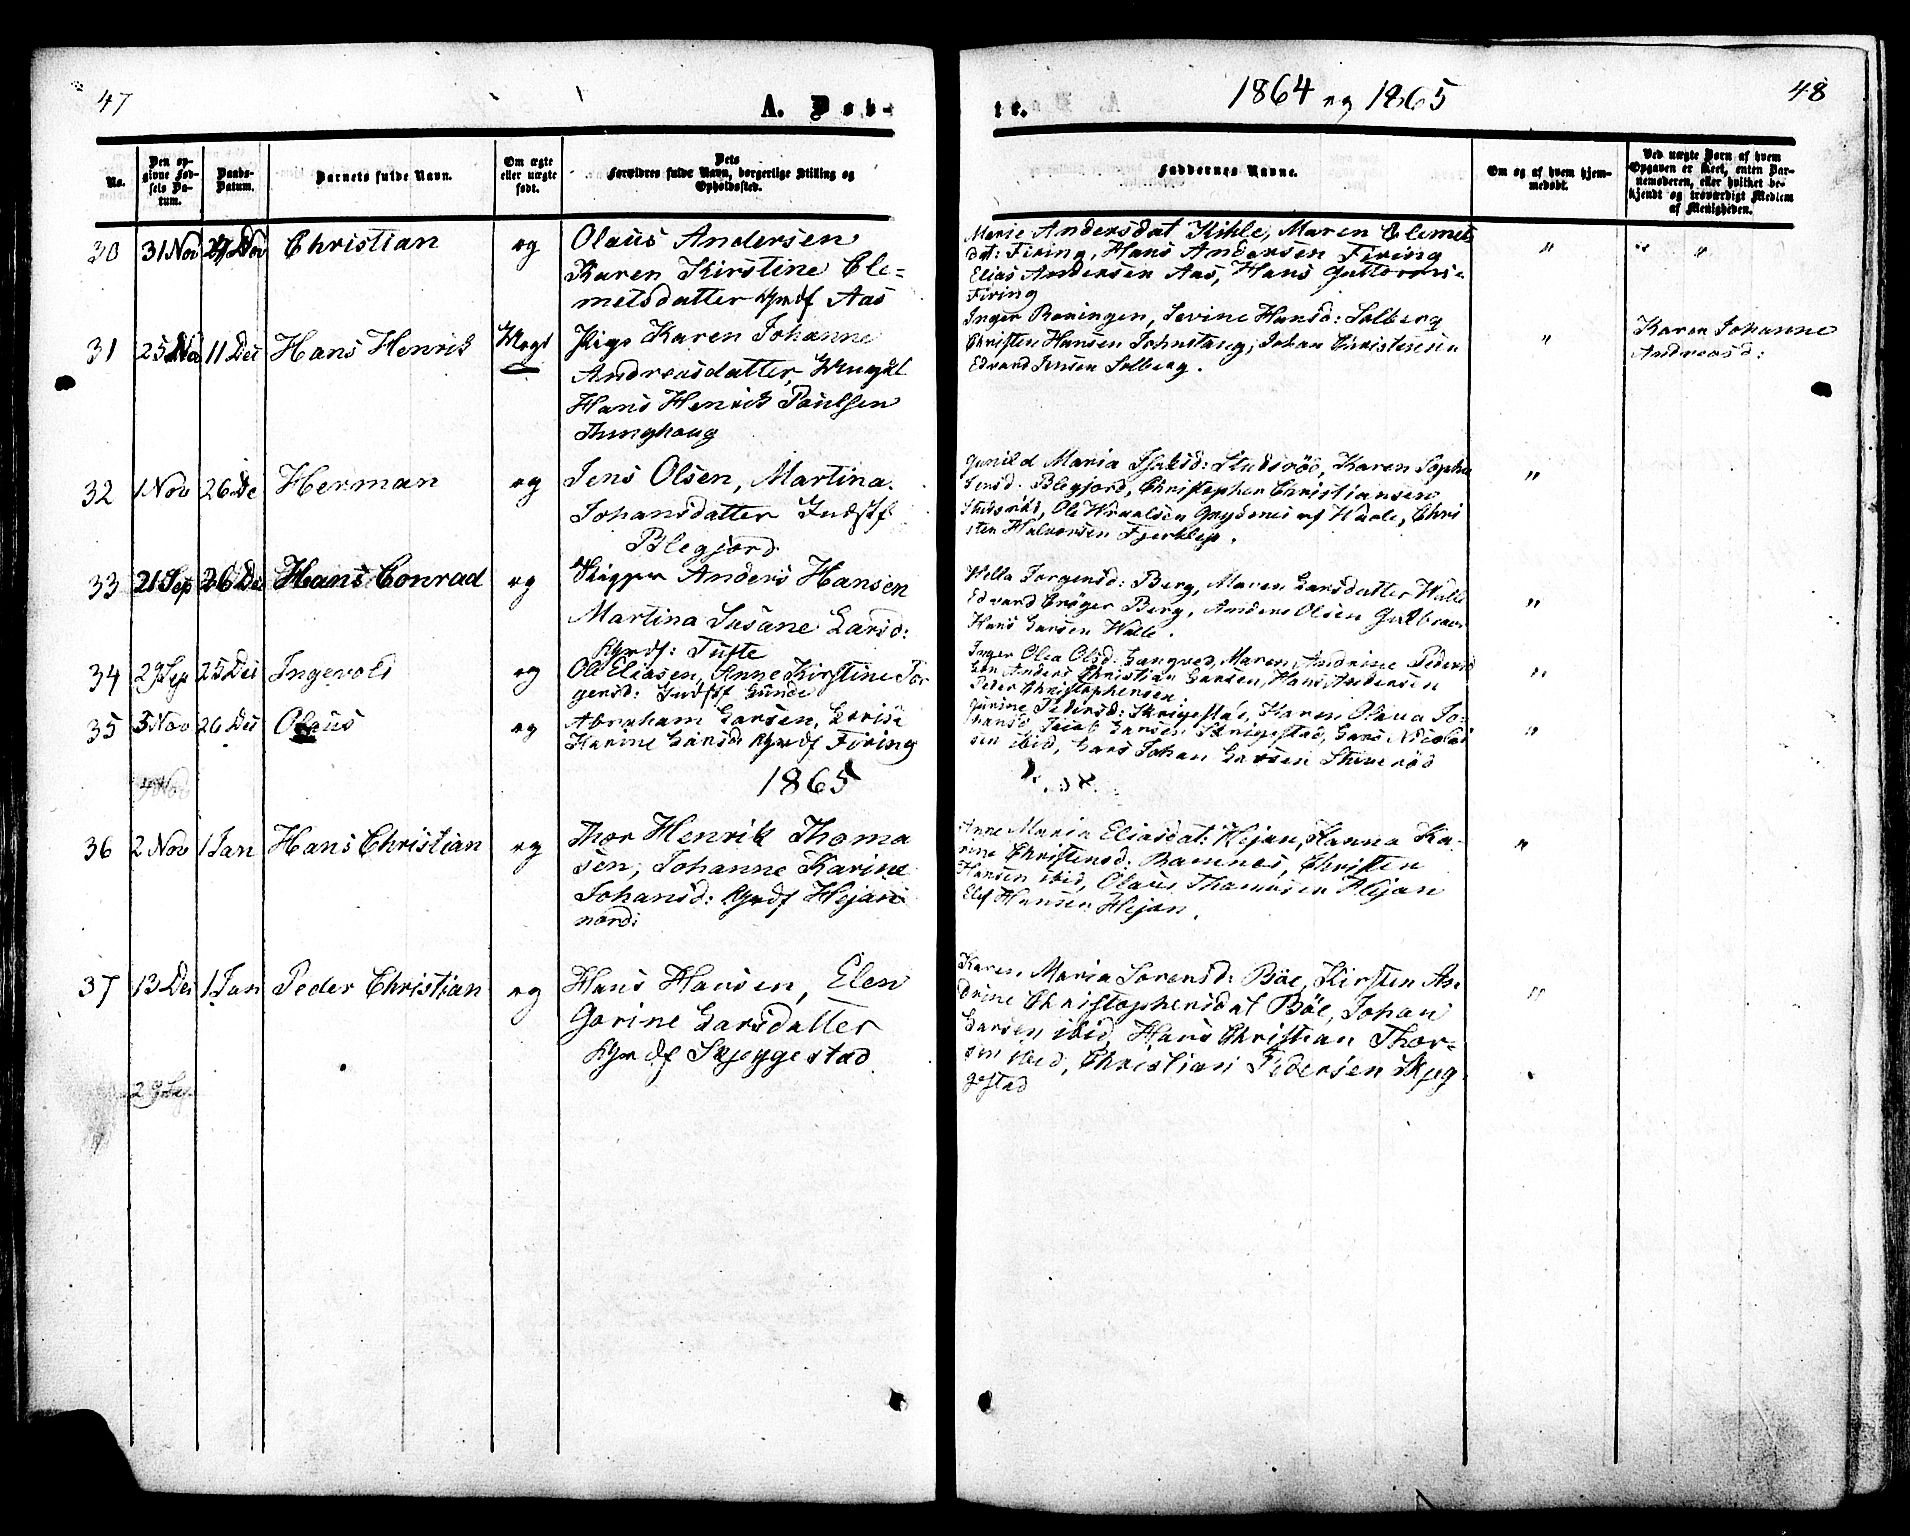 47
A. Døb-
te.
1864 og 1865
48
No.
Den op-
givne Fød-
sels Da-
tum.
Daabs-
Datum.
Barnets fulde Navn.
Om ægte
eller uægte
født.
Dets
Forældres fulde Navn, borgerlige Stilling og
Opholdssted.
Faddernes Navne.
Om og af hvem hjem-
medøbt.
Ved uægte Børn af hvem
Opgaven er skeet, enten Bar-
nemoderen, eller hvilket be-
kjendt og troværdigt Medlem
af Menigheden.
30 31 Nov 27 Nov Christian æg Olaus Andersen
Karen Kirstine Cle-
metsdatter Gmdf Aas
Marie Andersdat Kihle, Maren Clemets
dat: Firing, Hans Andersen Firing
Elias Andersen Aas, Hans Guttorms:
Firing
" " "
31 25 11 Des Hans Henrik Uægt Pige Karen Johanne
Andreasdatter, Ungkl
Hans Henrik Paulsen
Thunghaug
Inger Boningen, Sevine Hansd: Solberg
Christen Hansen, Johan Christensen
Edvard Jensen Solberg.
"
Karen Johanne
Andreasd:
32 1 Nov 26 De Herman æg Jens Olsen, Martina
Johansdatter Indstf
Blegjord
Gunild Maria Isaksd: Studsrød, Karen Sophie
Jensd: Blegjord, Christopher Christiansen
Studsrød, Ole af Waale, Chri
sten Halvorsen
"
33 21 Sep 26 Des Hans Conrad æg Skipper Anders Hansen
Martina Susane Larsd:
Gmdf: Tufte
Jørgensd: Berg, Maren Larsdatter Walle
Edvard Crøger Berg, Anders Olsen
Hans Larsen Walle.
"
34 29 Sep 25 Des Ingevold æg Ole Eliasen, Anne Kirstine Jør
gensd: Indstf Sunde
Inger Olea Olsd: Langved, Maren Andrine Pedersd
Anders Christian Larsen, Hans Andersen
Peder Christophersen
"
35 5 Nov 26 Des Olaus æg Abraham Larsen,
Karine Larsd Gmdf Firing
Gurine Pedersd: Skrigestad, Karen Olava Jo-
hansd Jacob Larsen Skrigestad, Lars Nicolai
sen ibid, Lars Johan Larsen
"
1865
36 2 Nov 1 Jan Hans Christian æg Thor Henrik Thoma
sen, Johanne Karine
Johansd: Gmdf Hejan
nord:
Anne Maria Eliasdat: Hejan, Hanna Ka-
rine Christensd: Bamnes, Christen
Hansen ibid, Olaus Thomasen Hejan
Elef Hansen Hejan.
"
37 13 Des 1 Jan Peder Christian æg Hans Hansen, Elen
Gorine Larsdatter
Gmdf Skjeggestad
Karen Maria Sørensd: Böe, Kirsten An
drine Christophersdat Böe, Johan
Larsen ibid, Hans Christian Thor-
sen ibid, Christian Pedersen Skjeg
gestad
"
29 Sep